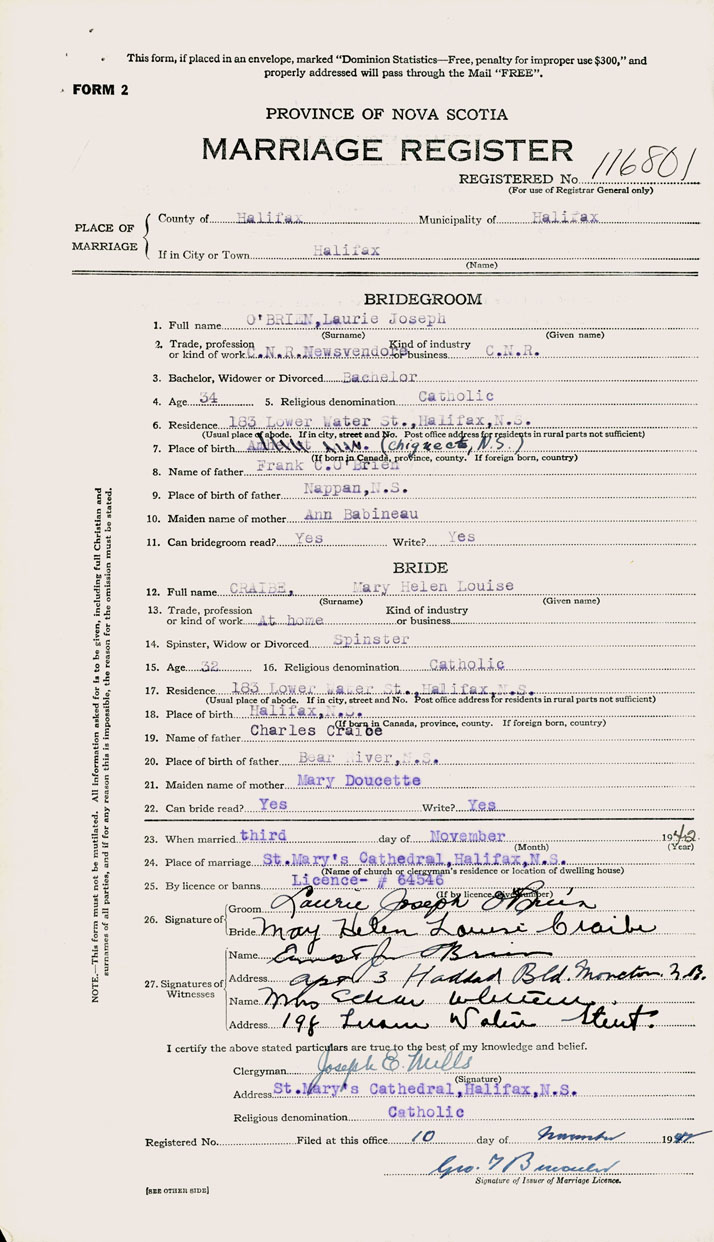 This form, if placed in an envelope, marked "Dominion Statistics—Free, penalty for improper use $300," and
properly addressed will pass through the Mail "FREE".
FORM 2
PROVINCE OF NOVA SCOTIA
MARRIAGE REGISTER
REGISTERED No. 116801
(For use of Registrar General only)
PLACE OF MARRIAGE
County of Halifax Municipality of Halifax
If in City or Town Halifax
(Name)
BRIDEGROOM
1. Full name O'BRIEN, Laurie Joseph
(Surname) (Given name)
2. Trade, profession Kind of industry
or kind of work C.N.R. Newsvendor or business C.N.R.
3. Bachelor, Widower or Divorced Bachelor
4. Age 34 5. Religious denomination Catholic
6. Residence 183 Lower Water St., Halifax, N.S.
(Usual place of abode. If in city, street and No. Post office address for residents in rural parts not sufficient)
7. Place of birth (Chignect, N.S.)
(If born in Canada, province, county. If foreign born, country)
8. Name of father Frank C. O'Brien
9. Place of birth of father Nappan, N.S.
10. Maiden name of mother Ann Babineau
11. Can bridegroom read? Yes Write? Yes
BRIDE
12. Full name CRAIBE, Mary Helen Louise
(Surname) (Given name)
13. Trade, profession Kind of industry
or kind of work At home or business
14. Spinster, Widow or Divorced Spinster
15. Age 32 16. Religious denomination Catholic
17. Residence 183 Lower Water St., Halifax, N.S.
(Usual place of abode. If in city, street and No. Post office address for residents in rural parts not sufficient)
18. Place of birth Halifax, N.S.
(If born in Canada, province, county. If foreign born, country)
19. Name of father Charles Craibe
20. Place of birth of father Bear River, N.S.
21. Maiden name of mother Mary Doucette
22. Can bride read? Yes Write? Yes
23. When married third day of November 1942
(Month) (Year)
24. Place of marriage St. Mary's Cathedral, Halifax, N.S.
(Name of church or clergyman's residence or location of dwelling house)
25. By licence or banns Licence- # 64546
(If by licence, give number)
26. Signature of
Groom Laurie Joseph O'Brien
Bride Mary Helen Louise Craibe
27. Signatures of Witnesses
Name Ernest J. O'Brien
Address apt 3 Haddad Bld. Moncton. N.B.
Name Mrs
Address 198 Water Street.
I certify the above stated particulars are true to the best of my knowledge and belief.
Clergyman Joseph E. Mills
(Signature)
Address St. Mary's Cathedral, Halifax, N.S.
Religious denomination Catholic
Registered No. Filed at this office 10 day of November 1942
Geo. T
Signature of Issuer of Marriage Licence.
[SEE OTHER SIDE]
NOTE.—This form must not be mutilated. All information asked for is to be given, including full Christian and
surnames of all parties, and if for any reason this is impossible, the reason for the omission must be stated.